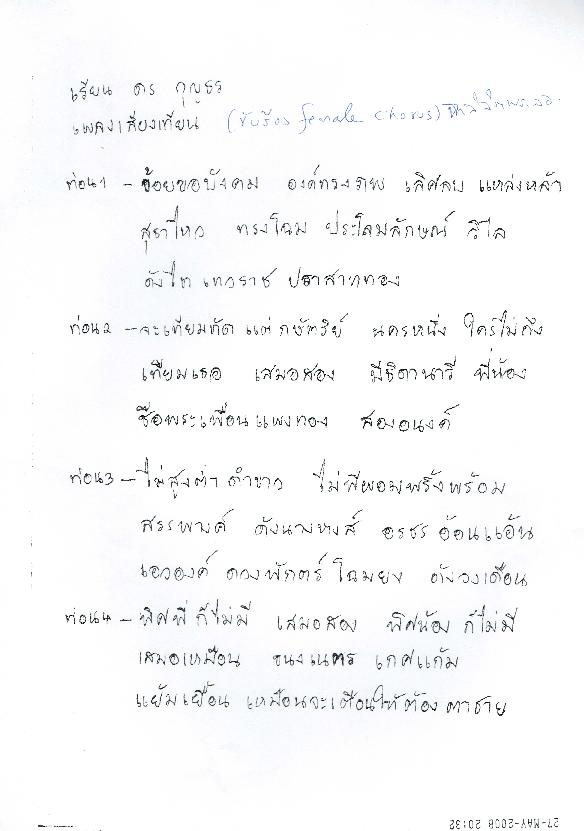 เรียน ดร กุญชร
เพลงเสี่ยงเทียน (ขับร้อง female chorus)
ท่อน1 - ข้อยขอบังคม องค์ทรงภพ เลิศลบ แหล่งหล้า
สุราไหว ทรงโฉม ประโลมลักษณ์ วิไล
ดังไท เทวราช ปราสาททอง
ท่อน2 - จะเทียมทัด แต่ กษัตริย์ นครหนึ่ง ใคร่ไม่ถึง
เทียมเธอ เสมอสอง มีธิดานารี พี่น้อง
ชื่อพระเพื่อนแพงทอง สองอนงค์
ท่อน3 - ไม่สูงต่ำ ดำขาว ไม่พีผอมพริ้งพร้อม
สรรพางค์ ดังนางหงส์ อรชร อ้อนแอ้น
เอวองค์ ดวงพักตร์ โฉมยง ดังวงเดือน
ท่อน4 - พิศพี่ ก็ไม่มี เสมอสอง พิศน้อง ก็ไม่มี
เสมอเหมือน ขนงเนตร เกศแก้ม
แย้มเยื้อน เหมือนจะเตือนให้ต้อง ตาชาย
27-MAY-2008 20:32